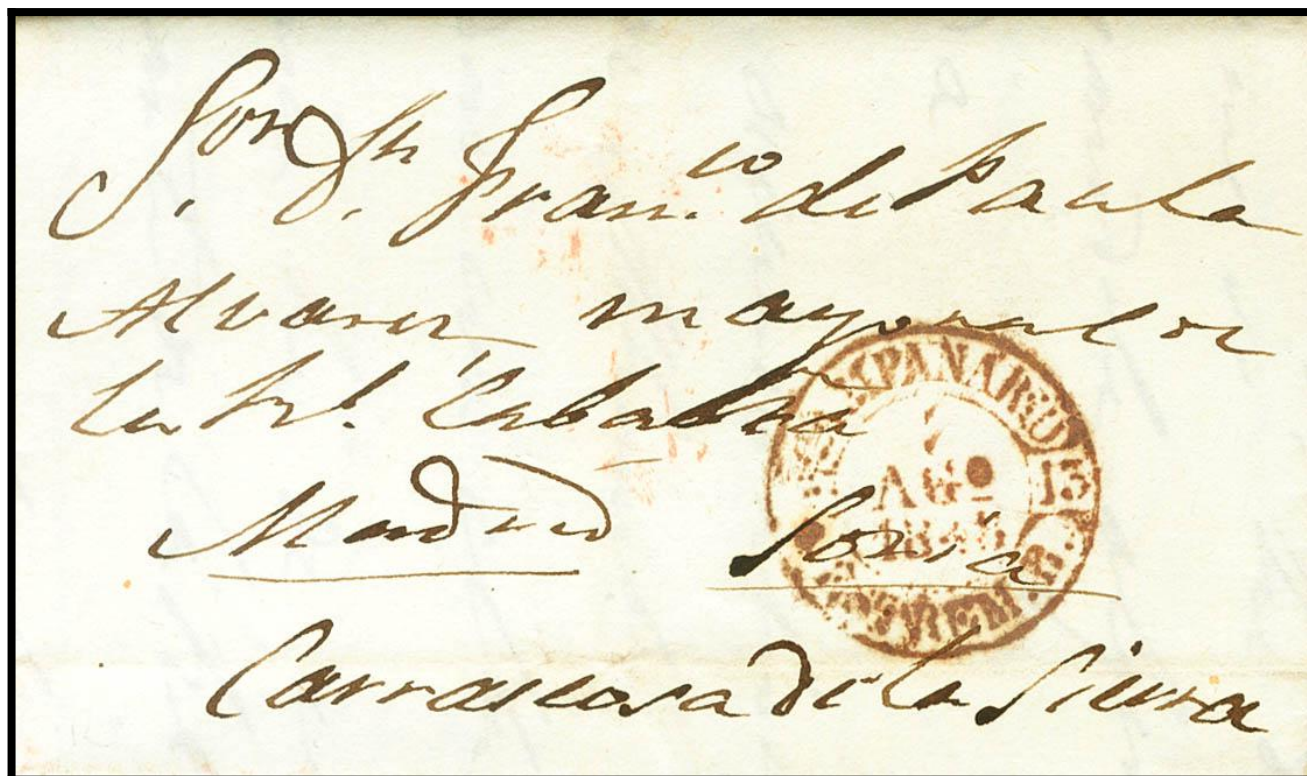 Sor. Dn. Franco. de Paula
Alvarez mayoral de
la Rl. Cabaña
Madrid Soria
Carrascosa de la Sierra
CAMPANARIO 13
7
AGO
EXTREM. B.